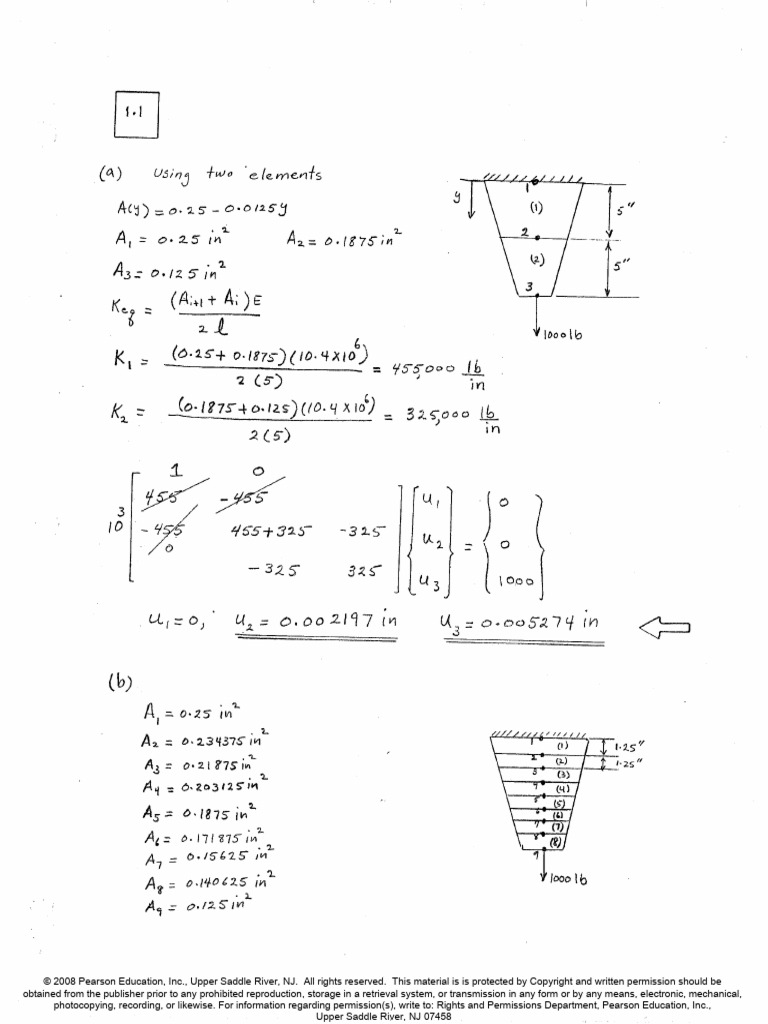 1.1
(a) Using two elements
A(y) = 0.25 - 0.0125y
A₁ = 0.25 in² A₂ = 0.1875 in²
A₃ = 0.125 in²
Keq = (Ai+1 + Ai)E / 2l
K₁ = (0.25 + 0.1875)(10.4×10⁶) / 2(5) = 455,000 lb/in
K₂ = (0.1875 + 0.125)(10.4×10⁶) / 2(5) = 325,000 lb/in
y
1
(1)
5"
2
(2)
5"
3
1000 lb
1 0
455 -455
10³ -455 455+325 -325
0
-325 325
u₁ 0
u₂ = 0
u₃ 1000
u₁ = 0, u₂ = 0.002197 in u₃ = 0.005274 in
(b)
A₁ = 0.25 in²
A₂ = 0.234375 in²
A₃ = 0.21875 in²
A₄ = 0.203125 in²
A₅ = 0.1875 in²
A₆ = 0.171875 in²
A₇ = 0.15625 in²
A₈ = 0.140625 in²
A₉ = 0.125 in²
1 (1) 1.25"
2 (2) 1.25"
3 (3)
4 (4)
5 (5)
6 (6)
7 (7)
8 (8)
9
1000 lb
© 2008 Pearson Education, Inc., Upper Saddle River, NJ. All rights reserved. This material is is protected by Copyright and written permission should be
obtained from the publisher prior to any prohibited reproduction, storage in a retrieval system, or transmission in any form or by any means, electronic, mechanical,
photocopying, recording, or likewise. For information regarding permission(s), write to: Rights and Permissions Department, Pearson Education, Inc.,
Upper Saddle River, NJ 07458